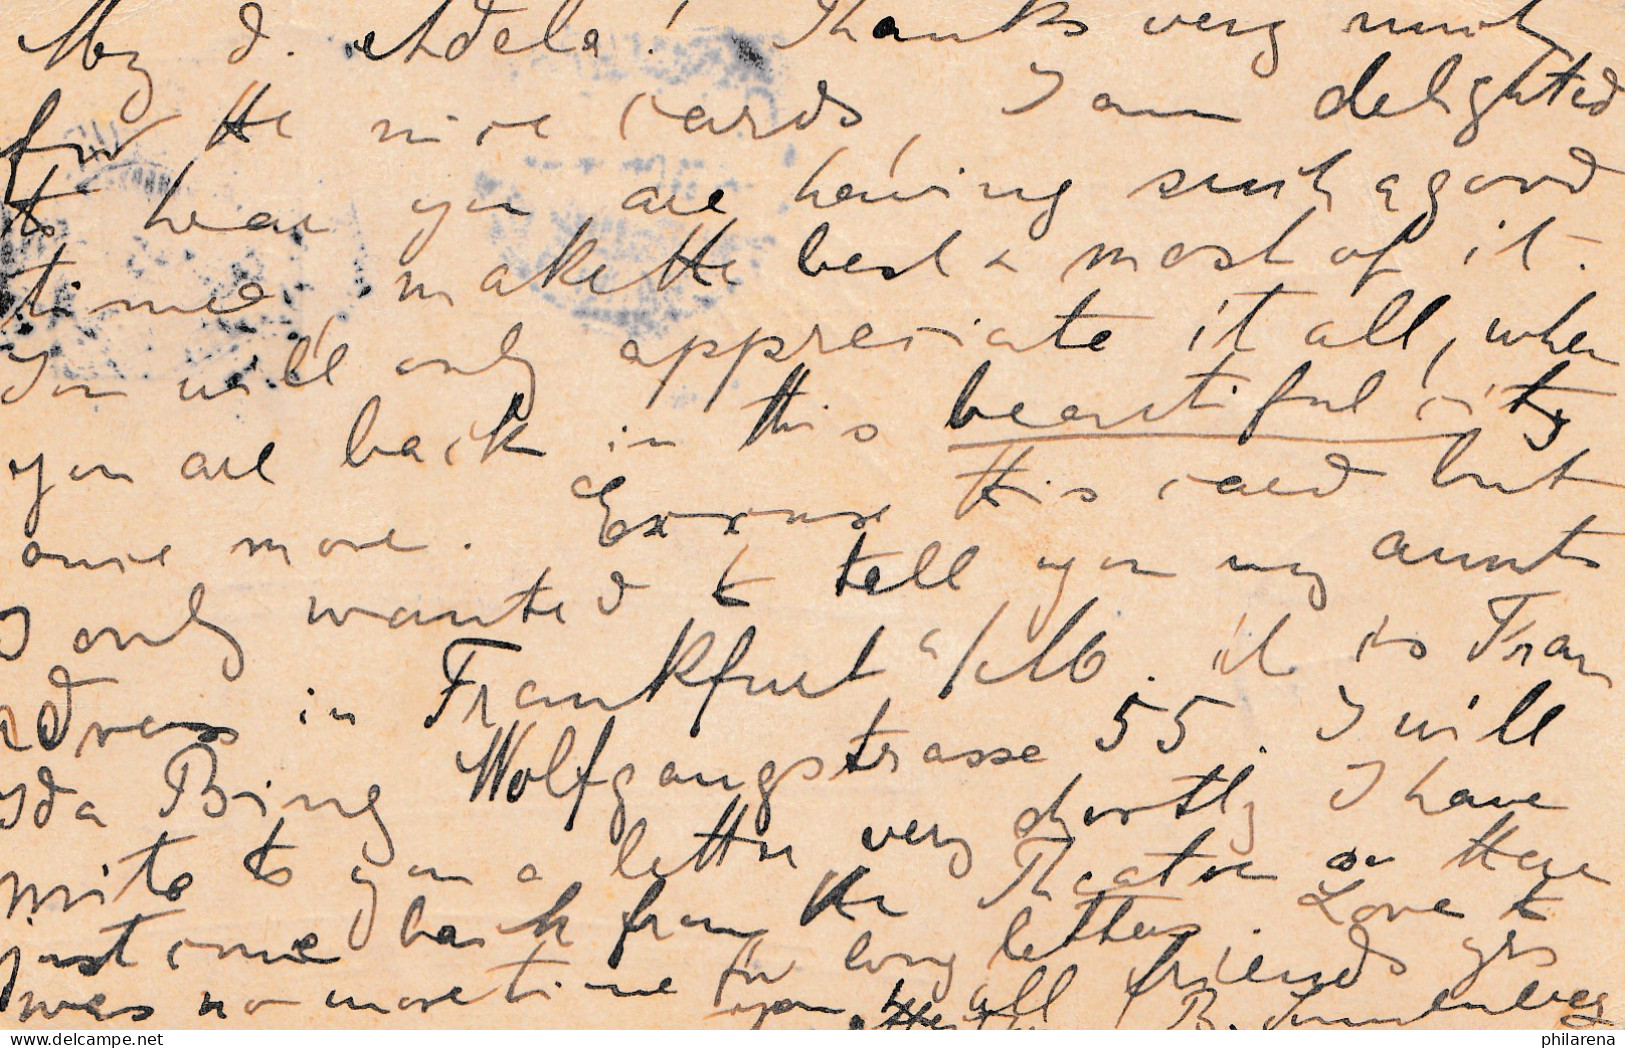 My d. Adela! Thanks very much
for the nice cards, I am delighted
to hear you are having such a good
time, make the best & most of it.
You will only appreciate it all, when
you are back in this beautiful city
once more. Excuse this card but
I only wanted to tell you my aunts
adress in Frankfurt a/M. it is Frau
Ida Bing Wolfgangstrasse 55. I will
write to you a letter very shortly I have
just come back from the Theatre & there
was no more time for long letters. Love to
you & all friends yrs
B.
philarena